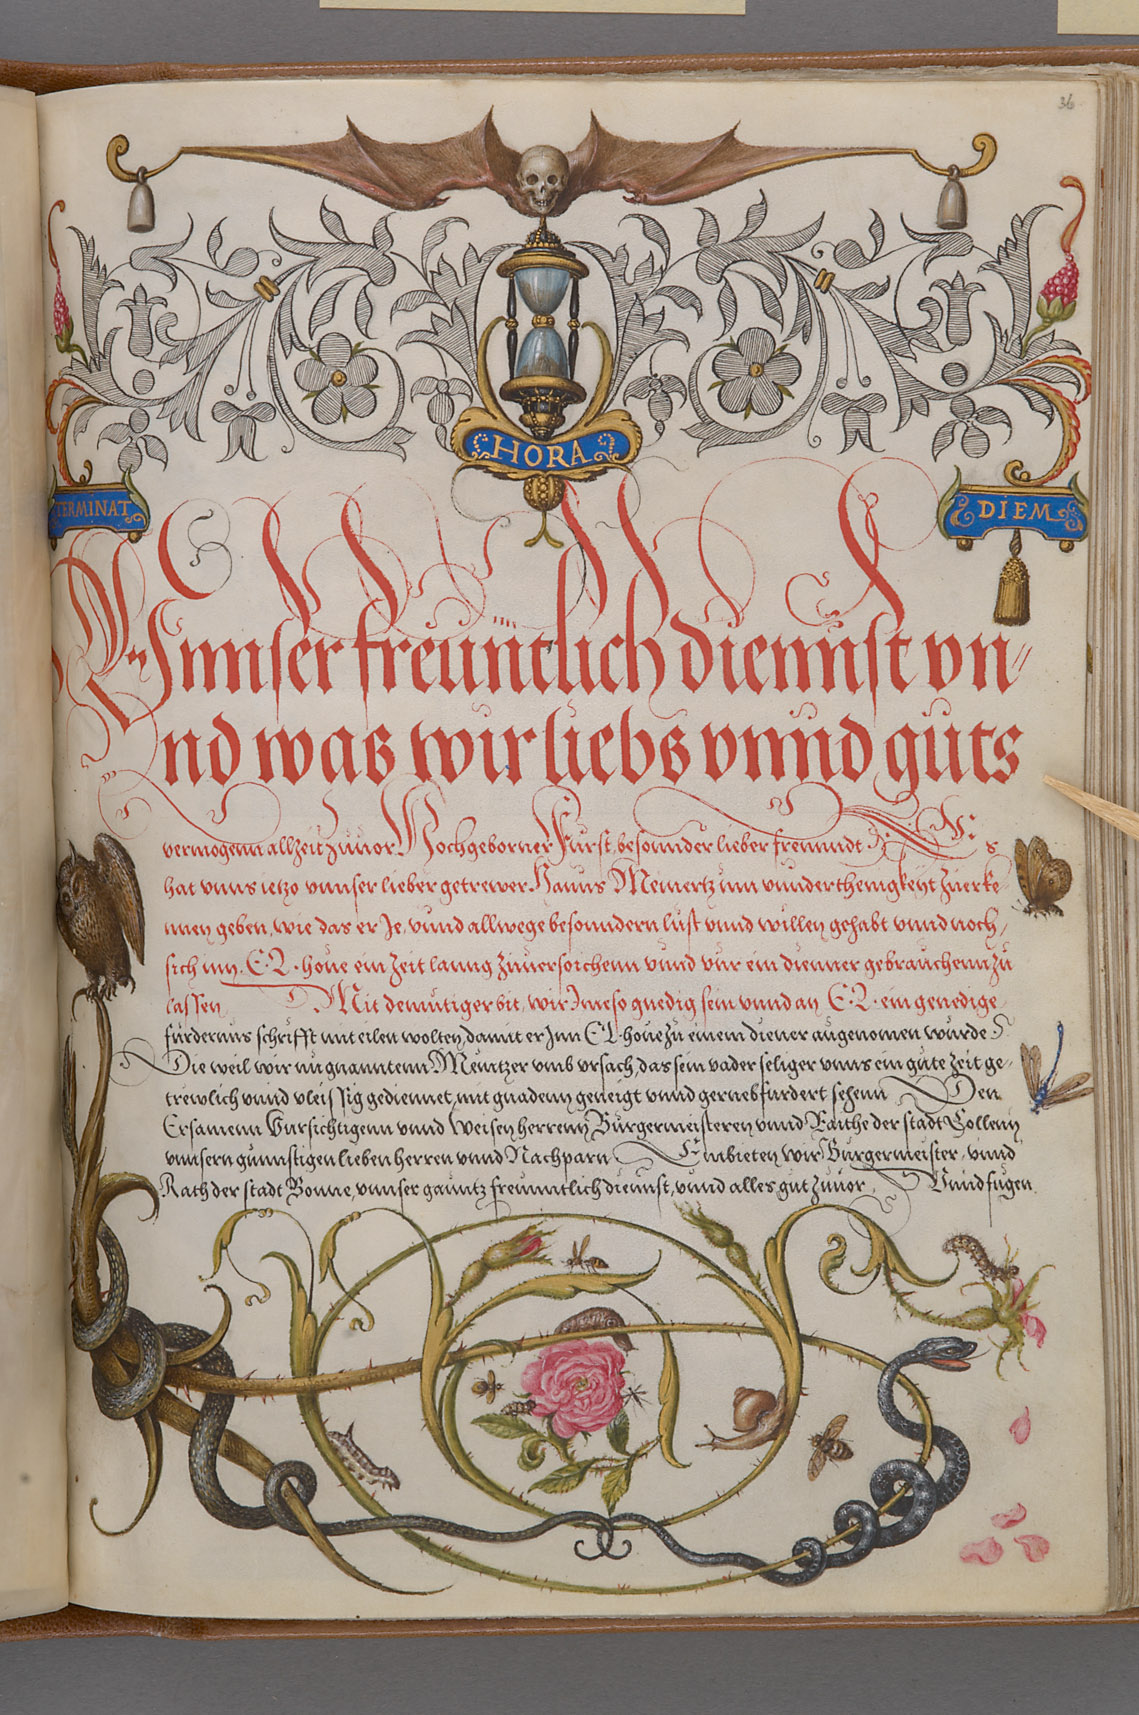 36
HORA
TERMINAT
DIEM
Vnnser freuntlich diennst vn//
nd was wir liebs vnnd guts
vermogenn allzeit zuuor. Hochgeborner Furst, besonnder lieber freunndt
hat vnns ietzo vnnser lieber getrewer Hanns Meinertz inn vnnderthenigkeyt zuerke/
nnen geben, wie das er Je, vnnd allwege besonndern lust vnnd willen gehabt vnnd noch/
sich inn. E. L. houe ein zeit lanng zuuersuchenn vnnd vur ein dienner gebrauchenn zu
lassen Mit demutiger bit, wir Jme so gnedig sein vnnd an E. L. ein genedige
furdernus schrifft mit eilen wolten, damit er Jnn E L houe zu einem diener angenomen wurde
Die weil wir nu gnanntenn Meintzer vmb vrsach, das sein vader seliger vnns ein gute zeit ge/
trewlich vnnd vleissig gediennet, mit gnadenn geneigt vnnd gernebfurdert sehenn Den
Ersamenn Fursichtigenn vnnd Weisen herrenn Burgermeisteren vnnd Raithe der stadt Collenn
vnnsern gunnstigen lieben herren vnnd Nachparn Embieten wir Burgermeister, vnnd
Rath der stadt Bonne, vnnser ganntz freunntlich diennst, vnnd alles gut zuuor, Vnnd fugen